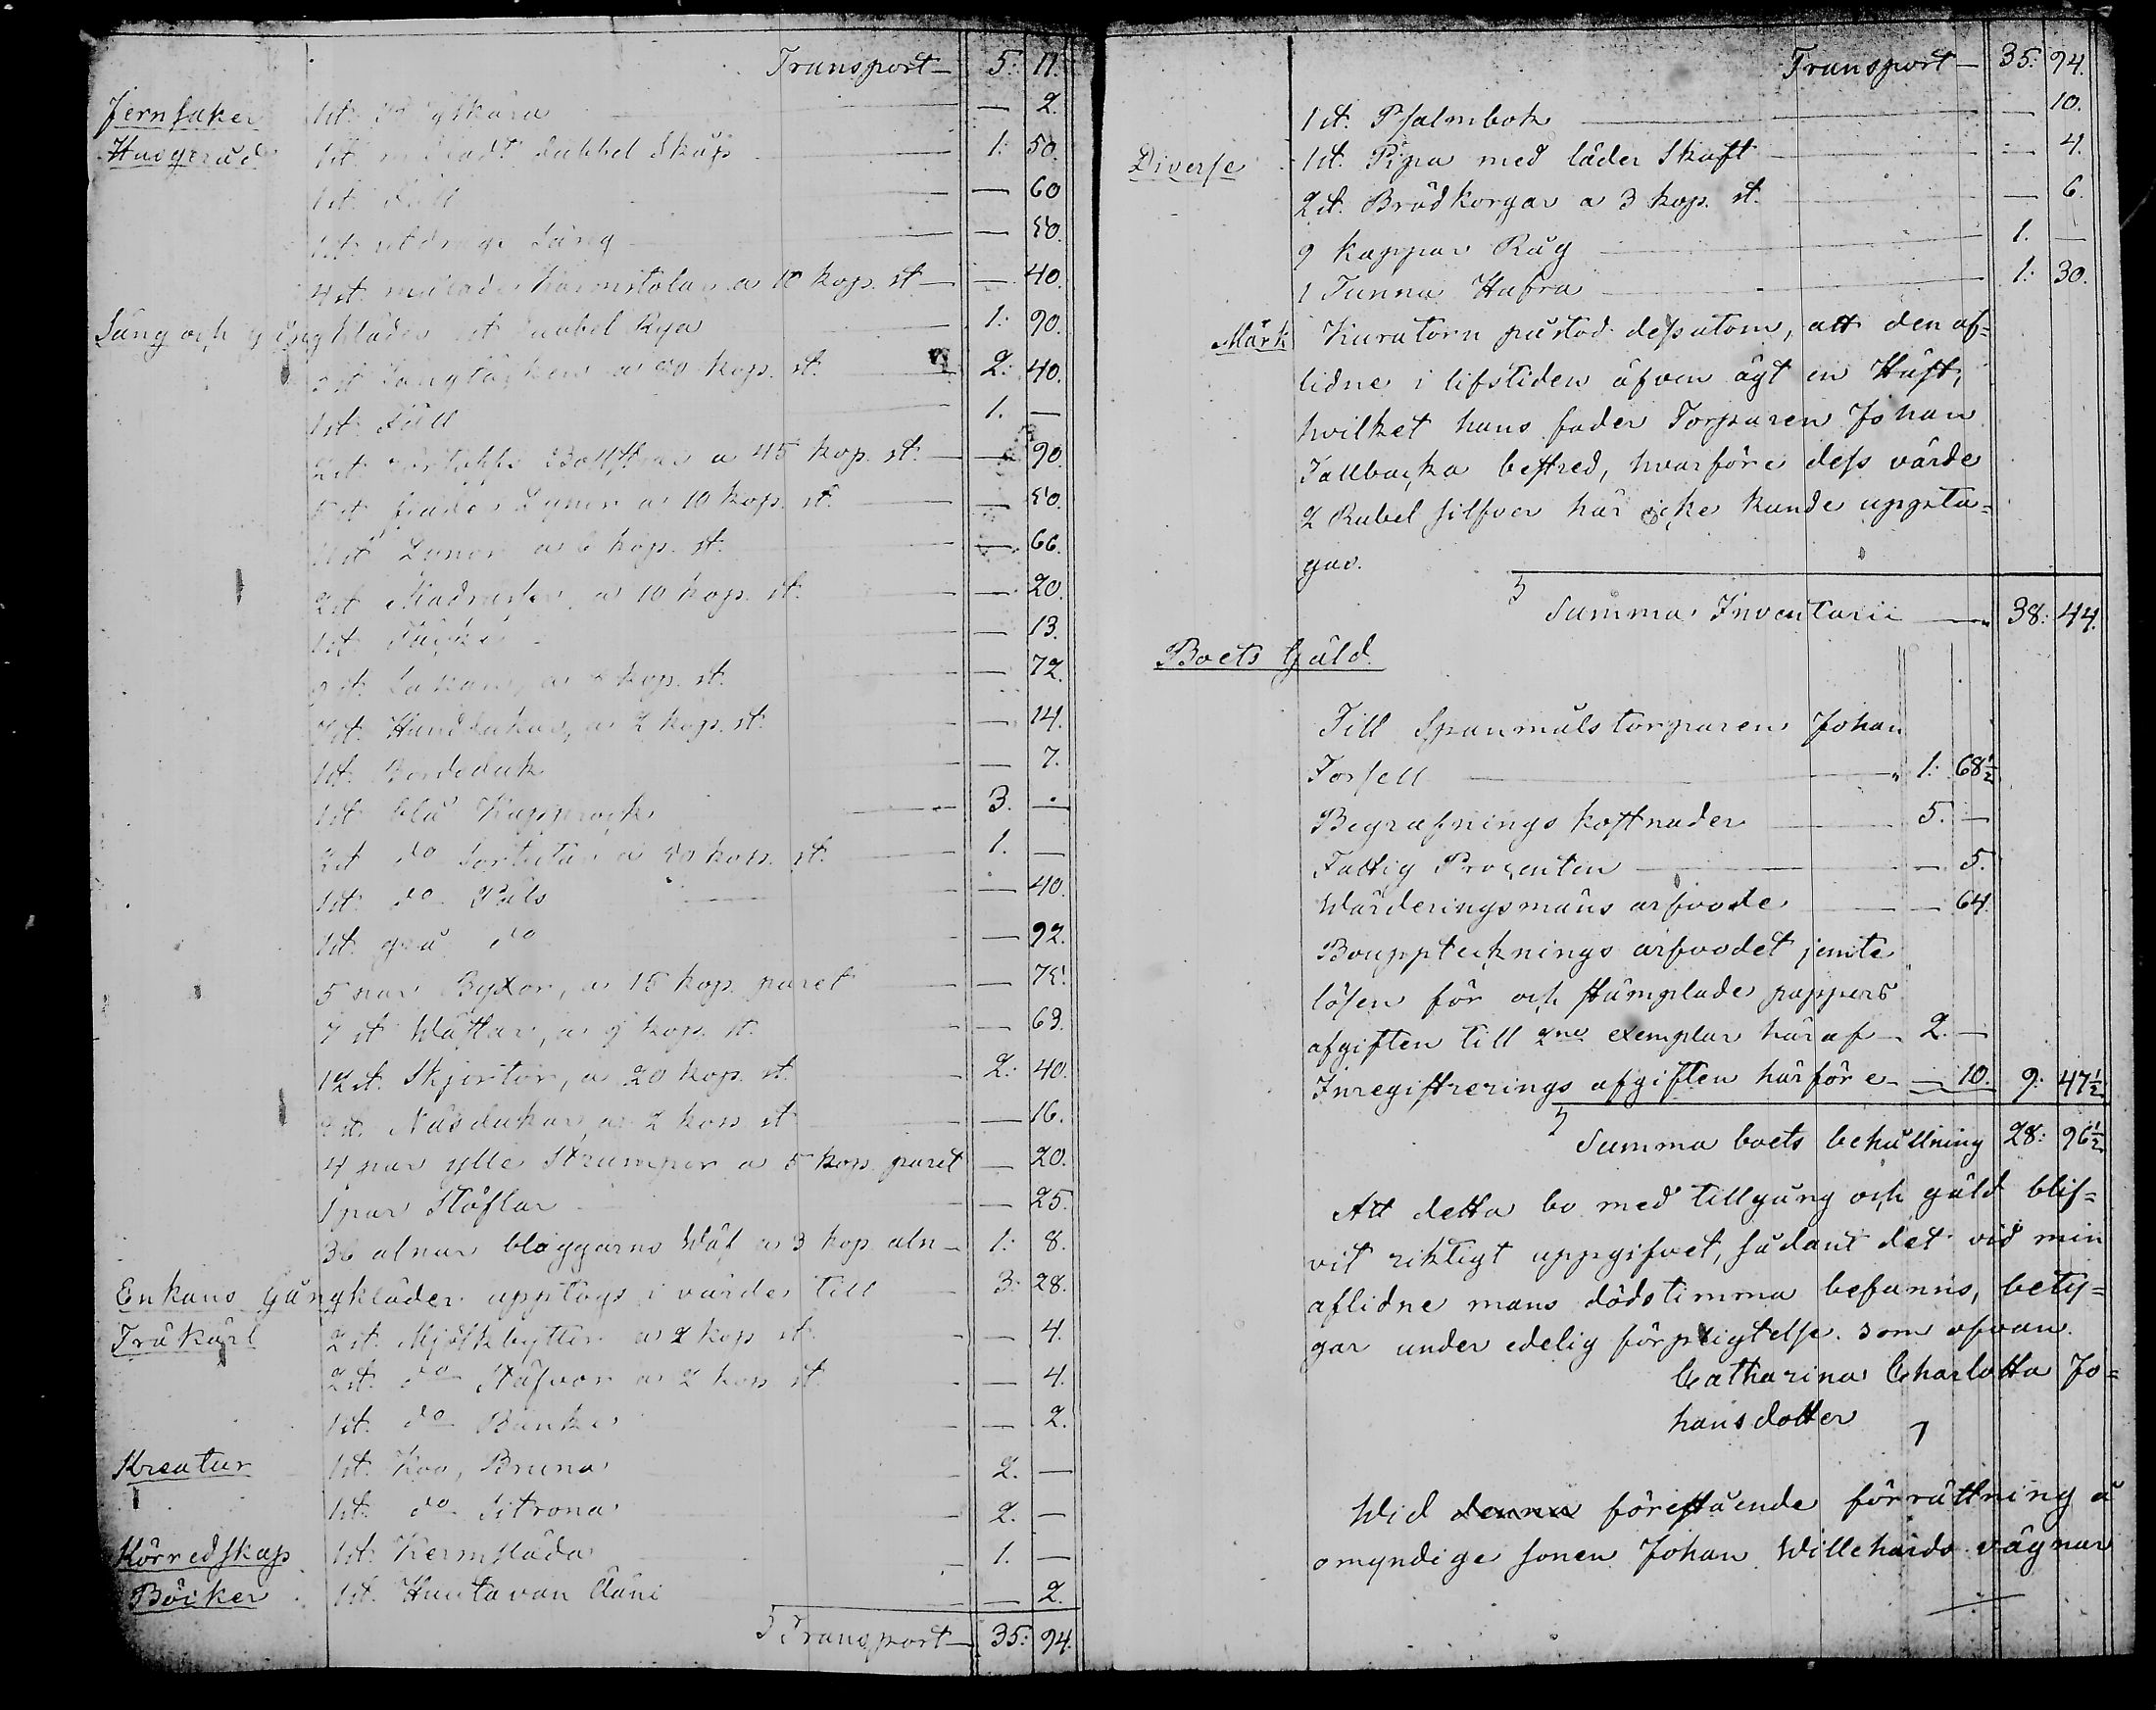 Transport — 5: 11.
Jernsaker 1 st. — 2.
Husgeråd 1 st. dubbel Skåp 1: 50.
1 st. — 60
1 st. utdrags Säng — 50.
4 st. målade Karmstolar a 10 kop. st — — 40.
Säng och gångkläder 1 st. dubbel Rya 1: 90.
3 st Sängtäcken a 80 kop. st. 2: 40.
1 st. Fäll 1. —
2 st. Bolstrar a 45 kop. st. — 90.
5 st fjäder Dynor a 10 kop. st. — 50.
11 st a 6 kop. st. — 66.
2 st Madraser a 10 kop. st. — 20.
1 st. Täcke — 13.
9 st. Lakan, a 8 kop. st. — 72.
7 st. Handdukar, a 2 kop. st. — 14.
1 st. Bordsduk — 7.
1 st blå Kapprock 3. —
2 st do a 50 kop. st. 1. —
1 st. do — 40.
1 st. grå do — 92.
5 par Byxor, a 15 kop. paret — 75.
7 st Wästar, a 9 kop. st. — 63.
12 st. Skjortor, a 20 kop. st. 2: 40.
8 st. Näsdukar, a 2 kop st — 16.
4 par ylle Strumpor a 5 kop. paret — 20.
1 par Stöflar — 25.
36 alnar blaggarns Wäf a 3 kop. aln — 1: 8.
Enkans Gångkläder upptogs i värde till 3: 28.
Träkärl 2 st. Mjölkbyttor a 2 kop st. — 4.
2 st. do Stäfvor a 2 kop st. — 4.
1 st. do Bunke — 2.
Kreatur 1 st. Koo, Bruna 2. —
1 st. do Sitrona 2. —
Körredskap 1 st. Kermsläda 1. —
Böcker 1 st. Huutavan Ääni — 2.
Transport — 35: 94.
Transport — 35: 94.
1 st. Psalmbok — 10.
Diverse 1 st. Pipa med läder Skaft — 4.
2 st. Brödkorgar a 3 kop. st. — 6.
9 Kappar Råg 1. —
1 Tunna Hafra 1: 30.
Märk Kuratorn påstod dessutom, att den af=
lidne i lifstiden äfven ägt en Häst,
hvilket hans fader Torparen Johan
Tallbacka bestred, hvarföre dess värde
2 Rubel silfver här icke kunde uppta=
gas.
Summa Inventarii — 38: 44.
Boets Gäld.
Till Spanmålstorparen Johan
Forsell 1: 68½
Begrafnings kostnader 5. —
Fattig Procenten — 5.
Wärderingsmäns arfvode — 64.
Bouppteknings arfvodet jemte
lösen för och stämplade pappers
afgiften till 2ne exemplar häraf — 2. —
Inregistrerings afgiften härföre — — 10. 9: 47½
Summa boets behållning 28: 96½
Att detta bo med tillgång och gäld blif=
vit riktigt uppgifvet, sådant det vid min
aflidne mans dödstimma befanns, bety=
gar under edelig förpligtelse. som ofvan.
Catharina Charlotta Jo=
hansdotter
Wid denna förestående förrättning å
omyndige sonen Johan Willehards vägnar